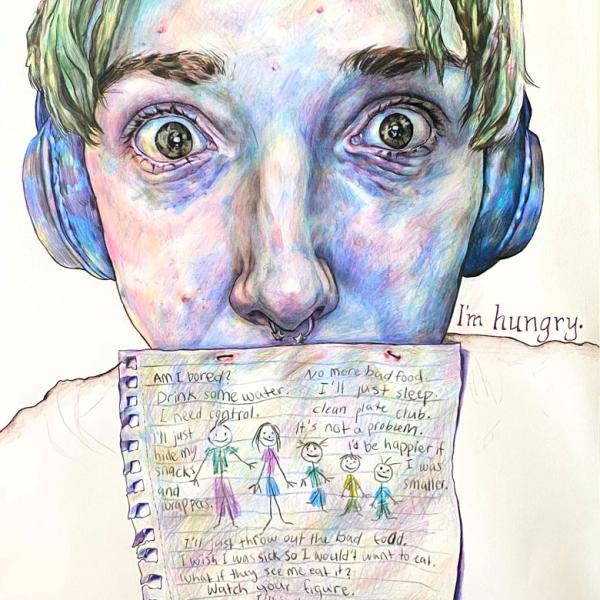 I'm hungry.
Am I bored?
Drink some water.
I need control.
I'll just
hide my
snacks
and
wrappers.
No more bad food.
I'll just sleep.
clean plate club.
It's not a problem.
I'd be happier if
I was
smaller.
I'll just throw out the bad food.
I wish I was sick so I wouldn't want to eat.
What if they see me eat it?
Watch your figure.